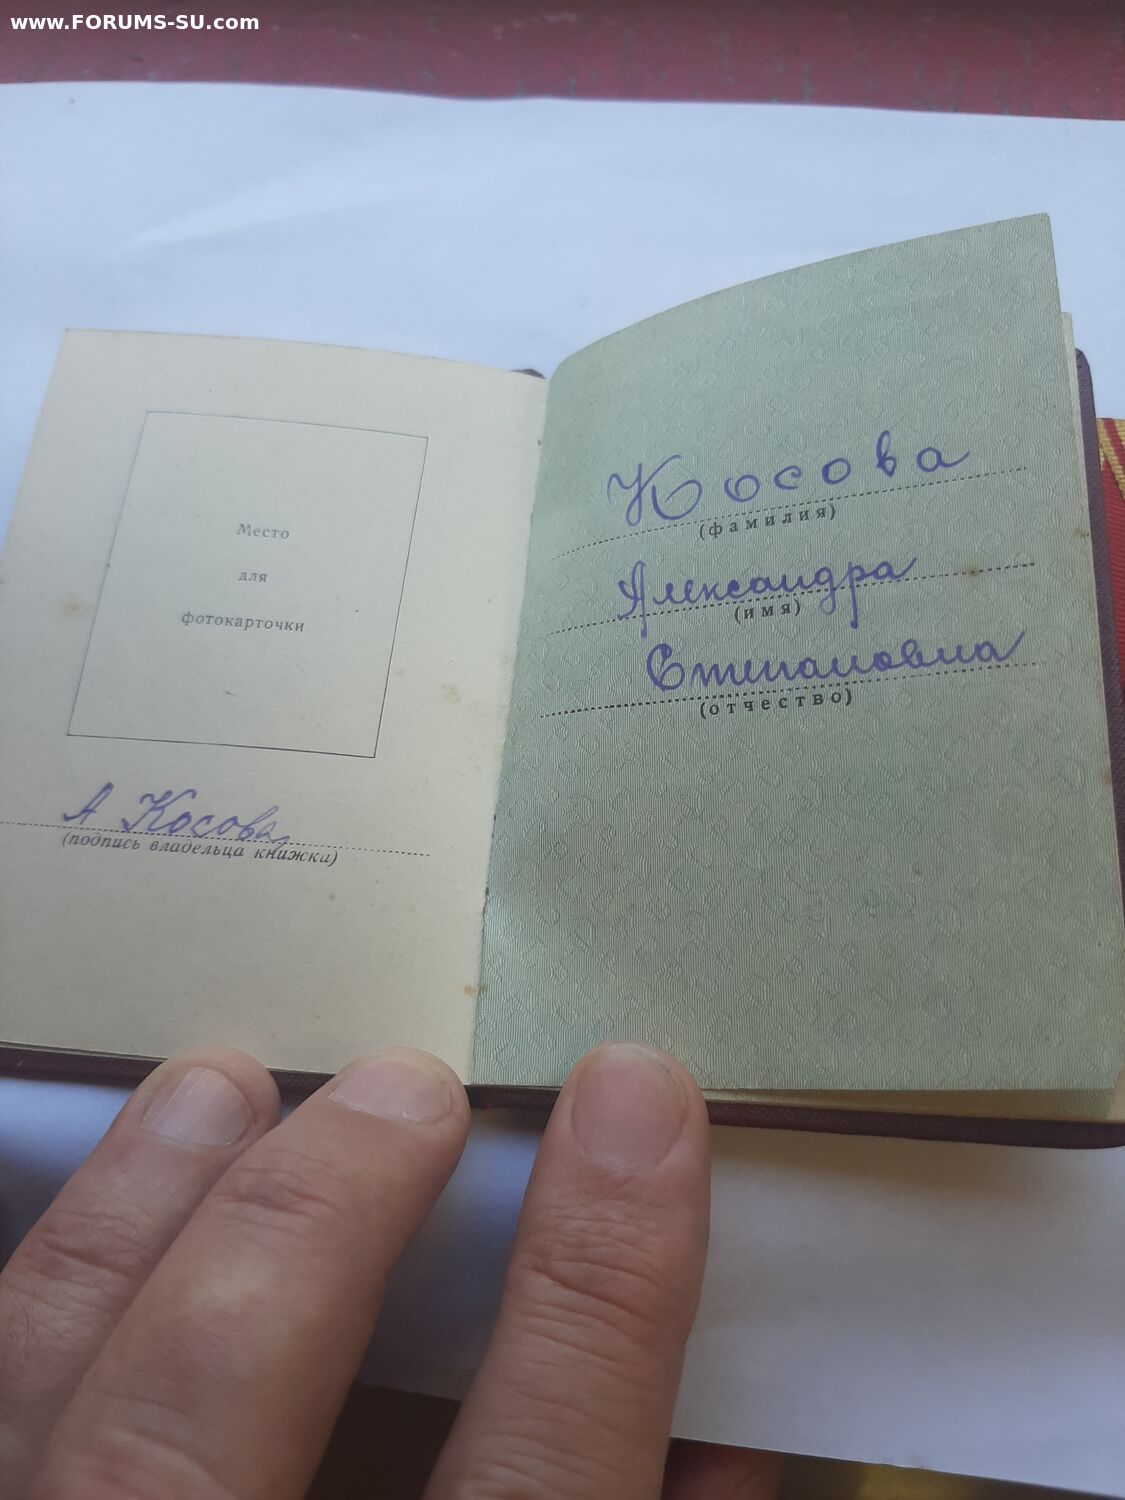 www.FORUMS-SU.com
Место
для
фотокарточки
А Косова
(подпись владельца книжки)
Косова
(фамилия)
Александра
(имя)
Степановна
(отчество)